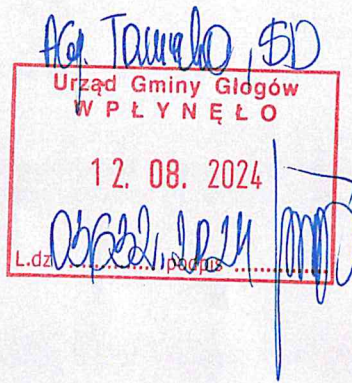 Urząd Gminy Głogów
WPŁYNĘŁO
12. 08. 2024
L.dz. 03632.2024 podpis